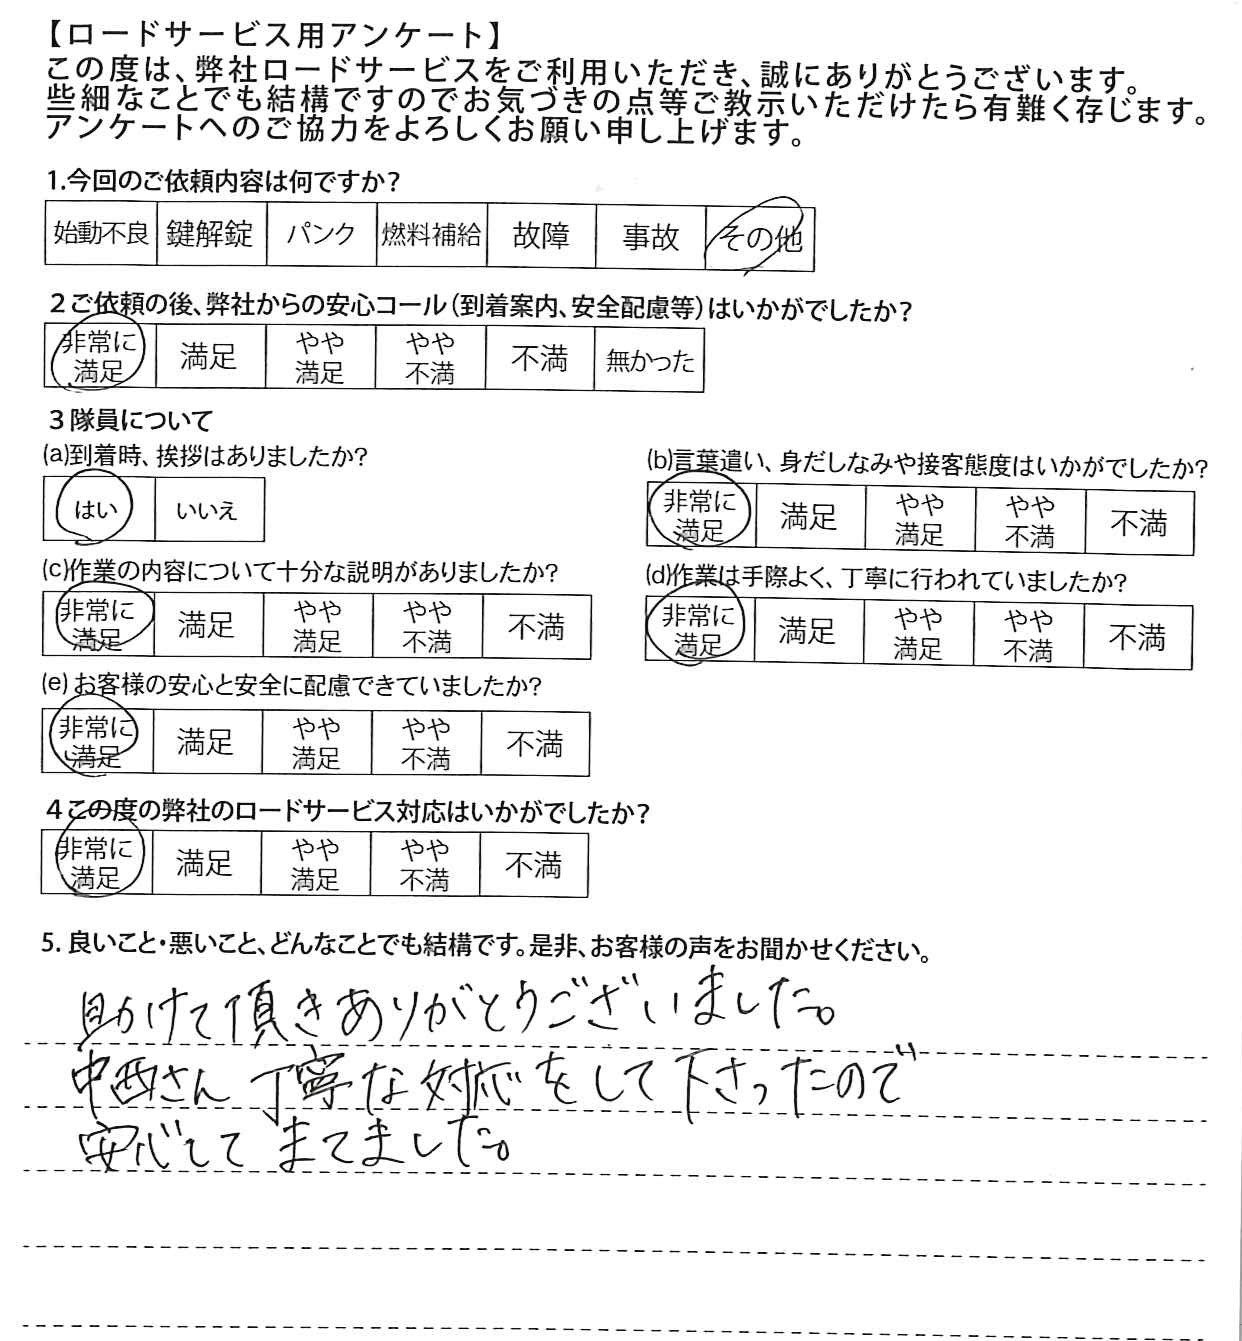 【ロードサービス用アンケート】
この度は、弊社ロードサービスをご利用いただき、誠にありがとうございます。
些細なことでも結構ですのでお気づきの点等ご教示いただけたら有難く存じます。
アンケートへのご協力をよろしくお願い申し上げます。
1.今回のご依頼内容は何ですか？
始動不良 鍵解錠 パンク 燃料補給 故障 事故 その他
２ご依頼の後、弊社からの安心コール（到着案内、安全配慮等）はいかがでしたか？
非常に満足 満足 やや満足 やや不満 不満 無かった
３隊員について
(a)到着時、挨拶はありましたか？
はい いいえ
(b)言葉遣い、身だしなみや接客態度はいかがでしたか？
非常に満足 満足 やや満足 やや不満 不満
(c)作業の内容について十分な説明がありましたか？
非常に満足 満足 やや満足 やや不満 不満
(d)作業は手際よく、丁寧に行われていましたか？
非常に満足 満足 やや満足 やや不満 不満
(e)お客様の安心と安全に配慮できていましたか？
非常に満足 満足 やや満足 やや不満 不満
４この度の弊社のロードサービス対応はいかがでしたか？
非常に満足 満足 やや満足 やや不満 不満
5. 良いこと・悪いこと、どんなことでも結構です。是非、お客様の声をお聞かせください。
助けて頂きありがとうございました。
中西さん 丁寧な対応をして下さったので
安心して まてました。